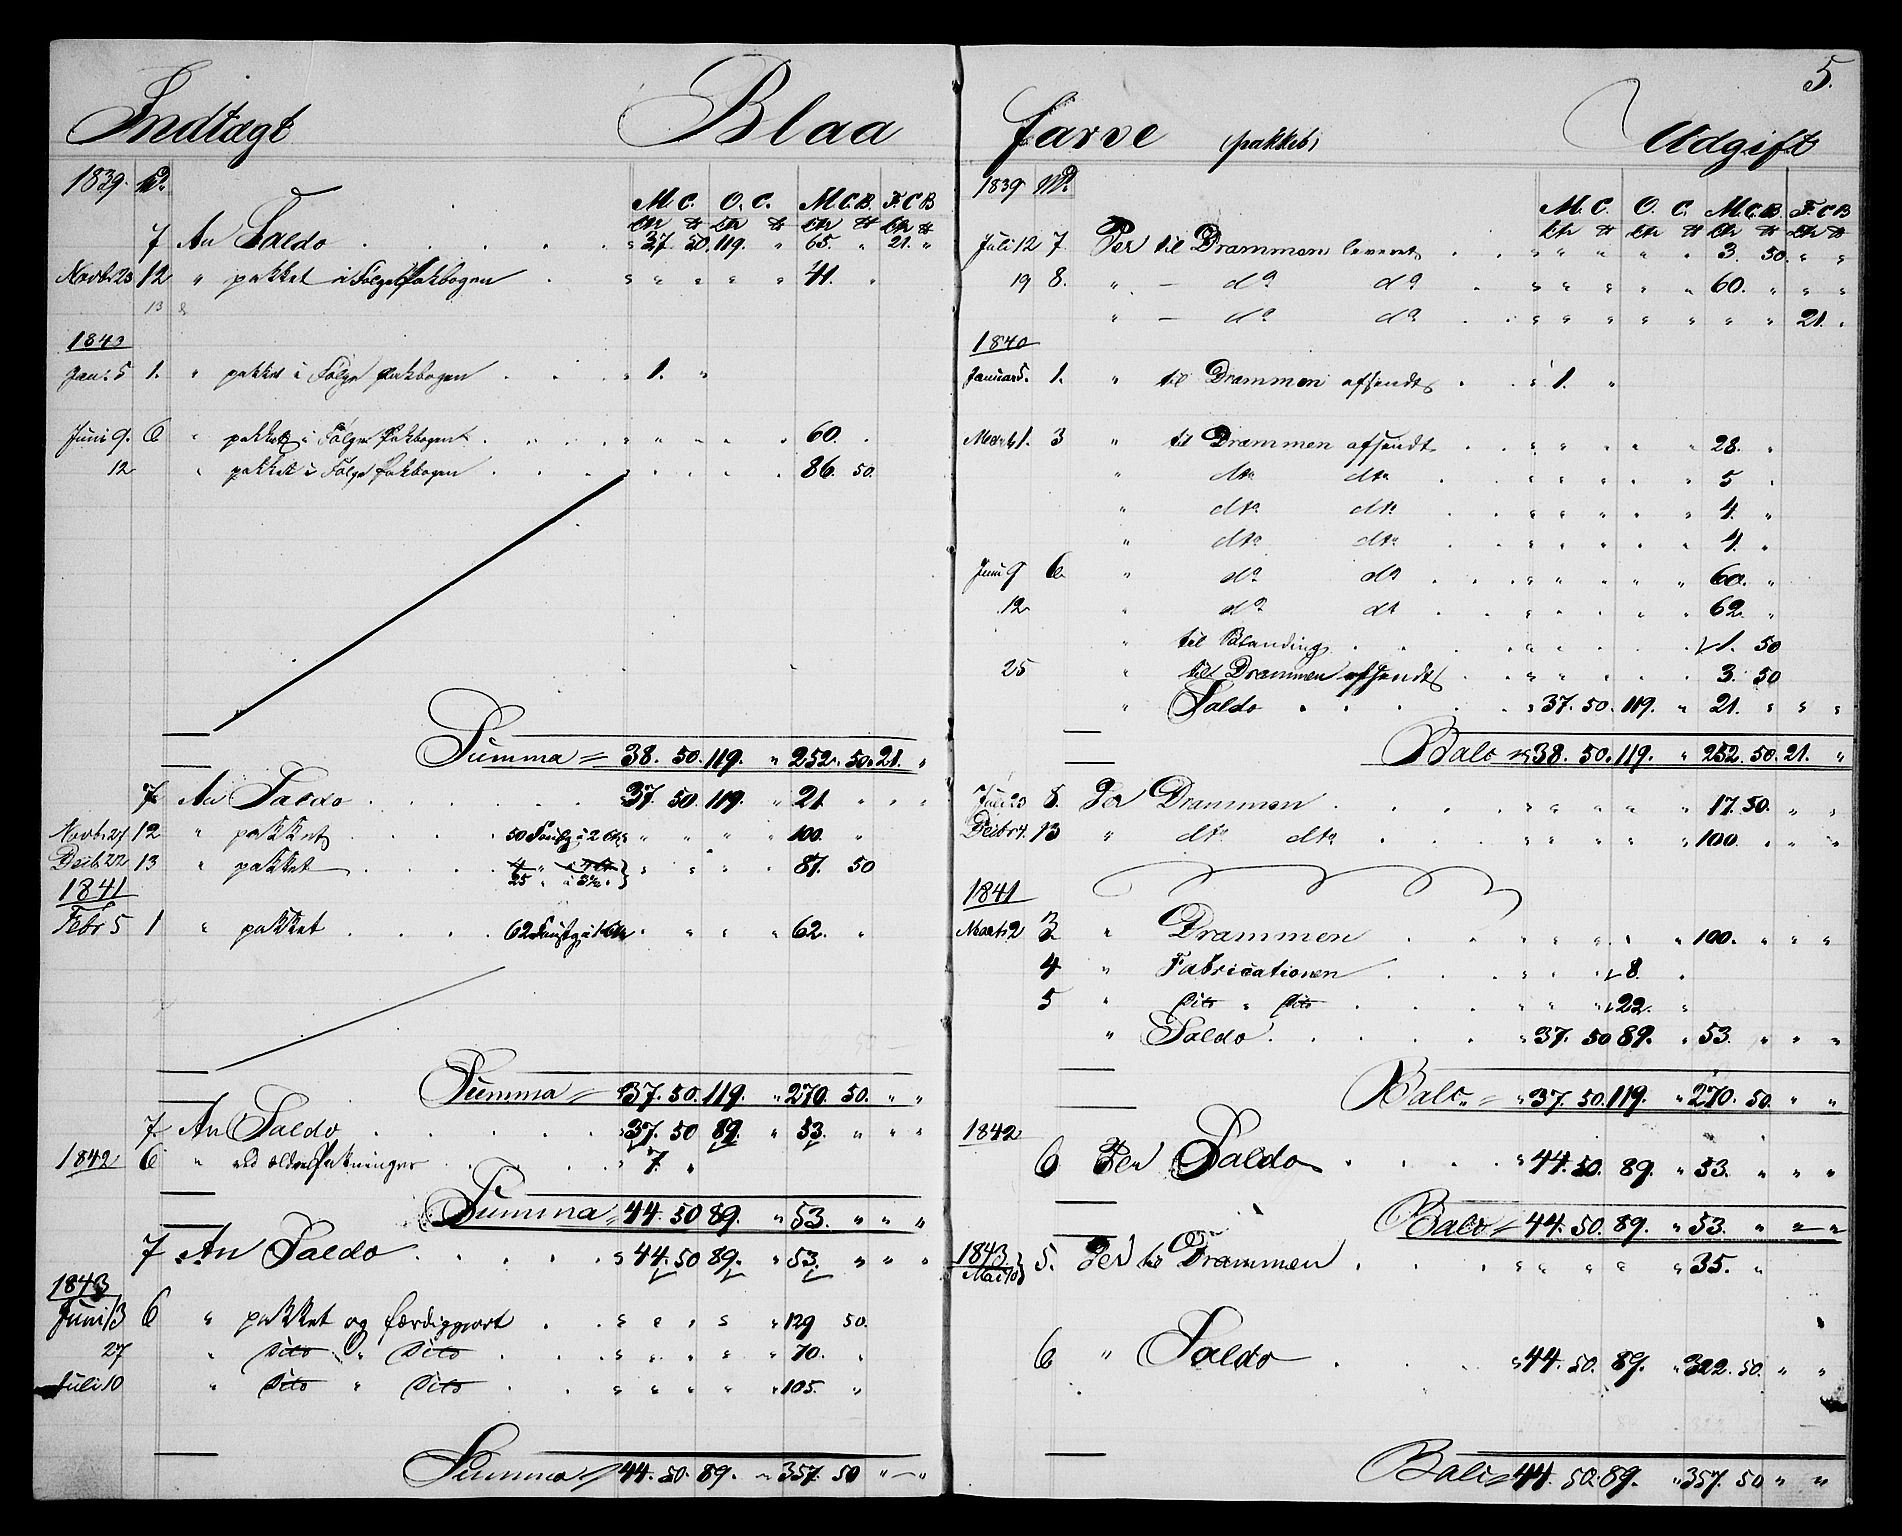 5.
Indtægt Blaa
1839. M.
M. C. O. C. M. C. B. F. C. B
Ctr ℔ Ctr ℔ Ctr ℔ Ctr ℔
7 An Saldo . . . . . " 37. 50. 119. " 65. " 21. "
Novbr 23 12 " pakket i Følge Pakbogen . " " " " 41. "
13 &
1840
Janr 5 1. " pakket i Følge Pakbogen . . . " 1. "
Juni 9. 6 " pakket i Følge Pakbogen . . . . " " " " 60. "
12 " pakket i Følge Pakbogen . . . . " " " " 86. 50.
Summa = 38. 50. 119. " 252. 50. 21. "
7 An Saldo . . . . . . 37. 50. 119. " 21. " " "
Novbr 21 12 " pakket . . . 50 Foustg à 2 Ctr " " " " 100. "
Decbr 22 13 " pakket . . . 25 " à 3½ " " " " " 87. 50
1841
Febr 5 1 " pakket . . . . 62 Foustg à 1 Ctr " " " " 62. "
Summa = 37. 50. 119. " 270. 50. " "
7 An Saldo . . . . . . 37. 50 89. " 53. " " "
1842 6 " ved ældre Pakninger . . . . " 7. "
Summa = 44. 50 89. " 53. " " "
7 An Saldo . . . . . " 44. 50 89. " 53. " " "
1843
Juni 13 6 " pakket og færdiggjort . . " " " " " 129 50.
27 " Dito " Dito . . . " " " " " 70. "
Juli 10 " Dito " Dito . . . " " " " " 105. "
Summa = 44. 50. 89. " 357. 50 " - "
farve (pakket) Udgift
1839 M.
M. C. O. C. M. C. B F. C B
Ctr ℔ Ctr ℔ Ctr ℔ Ctr ℔
Juli 12 7 Per til Drammen leveret . . " " " " 3. 50. " "
19 8. " — do do . " " " " 60. " " "
" — do do . . " " " " " " 21. "
1840
Januar 5. 1. " til Drammen afsendt . . " 1. "
Marts 1. 3 " til Drammen afsendt . . " " " " 28. "
" dto dto . . " " " " 5 "
" dto dto . . " " " " 4. "
" dto dto . . " " " " 4. "
Juni 9 6 " do do . . . " " " " 60. "
12 " do do . . . " " " " 62. "
" til Blanding . . . . . " " " " 1. 50
25 " til Drammen afsendt . . " " " " 3. 50
" Saldo . . . . . " 37. 50. 119. " 21. " " "
Balc " 38. 50. 119. " 252. 50. 21. "
Juli 23 8. Per Drammen . . . . " " " " 17. 50. " "
Decbr 4. 13 " dto dto . . . " " " " 100. " " "
1841
Marts 2 3 " Drammen . . . " " " " 100. " " "
4 " Fabricationen . . . " " 8. "
5 " Dito " Dito . . . " " " 22. "
" Saldo . . . . . " 37. 50 89. " 53. " " "
Balc. = " 37. 50. 119. " 270. 50. " "
1842
6 Per Saldo . . . . " 44. 50. 89. " 53. " " "
Balc = 44. 50. 89. " 53. " " "
1843. Mai 10 5. Per til Drammen . . . " " " " 35. "
6 " Saldo . . . . " 44. 50. 89. " 322. 50. " "
Balc = 44. 50. 89. " 357. 50 " "